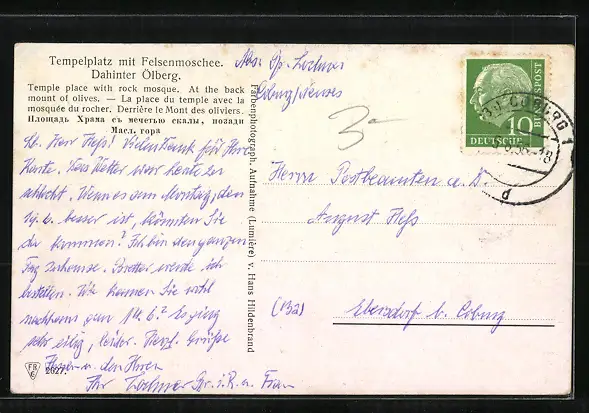 Tempelplatz mit Felsenmoschee.
Dahinter Ölberg.
Temple place with rock mosque. At the back
mount of olives. — La place du temple avec la
mosquée du rocher. Derrière le Mont des oliviers.
Площадь Храма съ мечетью скалы, позади
Масл. гора
Lb. Herr Heß! Vielen Dank für Ihre
Karte. Das Wetter war heute so
schlecht. Wenn es am Montag, den
besser ist, könnten Sie
da kommen? Ich bin den ganzen
Tag zuhause. Bretter werde ich
bestellen. Wie kommen Sie wohl
nachhaus zum Es ging
sehr eilig, leider. Herzl. Grüße
Ihnen u. den Ihren
Ihr Lochner i.R. u. Frau
2027.
Farbenphotograph. Aufnahme (Lumière) v. Hans Hildenbrand
Abs. Lochner
Coburg/
3-
DEUTSCHE
BUNDESPOST
10
COBURG 1
d
Herrn Postbeamten a. D.
August Heß
(13a)
Ebersdorf b. Coburg